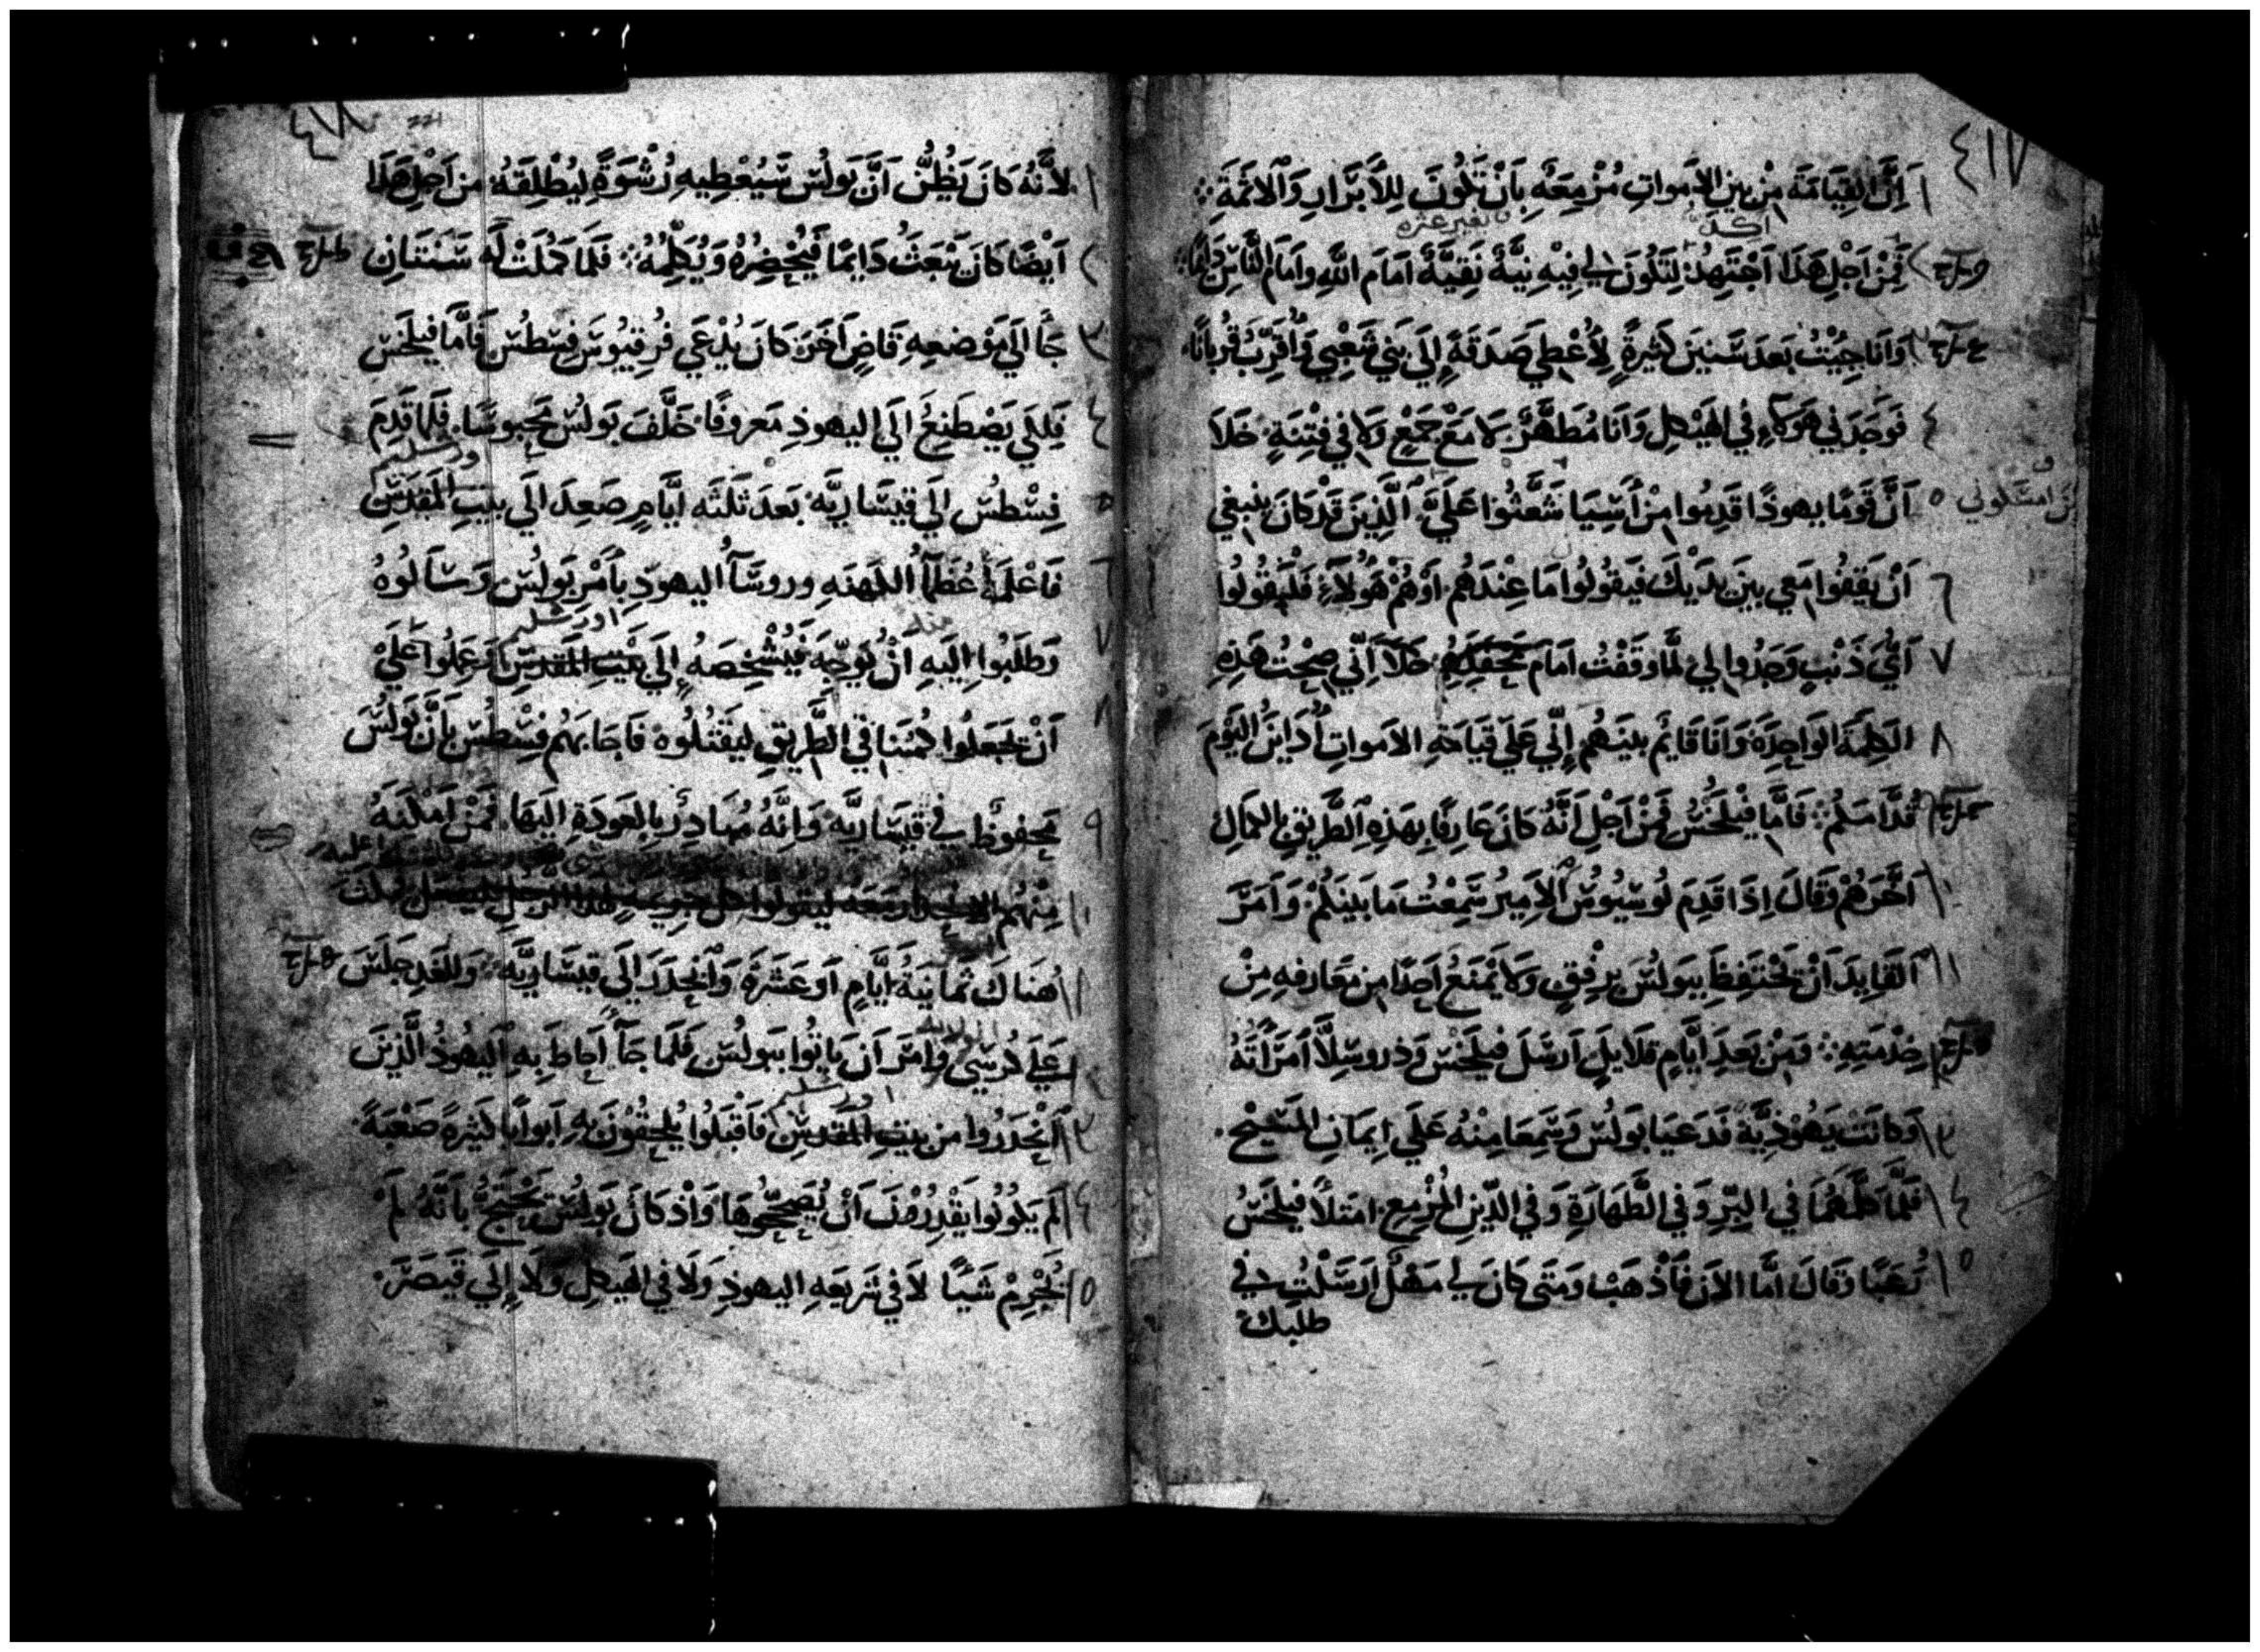 ٤١٧
١ اِنَّ القِيَامَة مِنْ بين الاموات مُزْمِعَه بِاَنْ تَكُونَ لِلاَبْرَارِ وَالاثمَةِ
اكد بغير عثره
٢ فَمِنْ اَجْلِ هَذَا اَجْتَهِدُ لِتَكُونَ لي فِيهِ نِيَّةً نَقِيَّةً اَمَامَ اللَّهِ وامَامَ النَّاسِ دَايمًا
٣ وَانَا جِيْتُ بَعدَ سَنينَ كَثِيرةٍ لِاُعْطِي صَدَقَةً اِلَي بَني شَعْبِي وَاُقَرِّبُ قُربانًا
٤ فَوَجَدَني هَوُلاءِ في الهَيْكلِ وَانَا مُطَهَّرٌ لا مَعْ جَمْعٍ وَلا في فِتنَةٍ خَلَا
٥ اَنَّ قَومًا يهوذًا قَدِمُوا مِنْ اَسِيَا شَعَّثُوا عَلَيَّ الَّذِينَ قَدْ كَانَ يَنبغي
٦ اَنْ يَقِفُوا مَعِي بينَ يَدَيْكَ فيَقُولُوا مَا عِنْدَهُم اَوْ هُمْ هَوُلَاءِ فَلْيَقُولُوا
٧ اَيَّ ذَنْبٍ وَجَدُوا لي لَمَّا وَقَفْتُ امَامَ مَحْفِلِهِم خَلَا اَنّي صِحْتُ هَذِهِ
٨ الكَلِمَةَ الوَاحِدَةَ وَانَا قَايمٌ بينَهُم اِنّي عَلَي قِيَامَةِ الاموَاتِ اُدَايَنُ اليَوْمَ
قُدَّامَكُم فَامَّا فيلخسُ فَمِنْ اَجْلِ اَنَّهُ كانَ عَارِفًا بِهَذِهِ الطَّرِيقِ بِالكمَالِ
١٠ اَخَّرَهُمْ وَقَالَ اِذَا قَدِمَ لُوسِيُوسُ الاَمِيرُ سَمِعْتُ مَا بَينَكُمْ وَاَمَرَ
١١ القَايِدَ اَنْ يَحْتَفِظَ بِبَولُسَ بِرِفْقٍ وَلا يَمْنَعُ اَحَدًا مِن مَعَارفهِ مِنْ
خِدْمَتِهِ وَمِنْ بَعدِ اَيَّامٍ قَلَايِلٍ اَرسَلَ فيلخس وَذروسِلَّا اَمْرَاَتَهُ
١٣ وَكانَت يَهُوْذِيَّة فَدَعَيَا بَولُسَ وَسَمِعَا مِنْهُ عَلَي اِيمَانِ المَسِيحِ
١٤ فَلَمَّا كلَّمَهُمَا في البِرِّ وَفي الطَّهَارَةِ وَفي الدّينِ المُزْمِع امتَلاَ فيلخسُ
١٥ رُعْبًا وَقالَ اَمَّا الاَن فَاَذْهَبْ وَمَتَى كانَ لي مَهْلٌ اَرسَلْتُ في
طلبك
٤١٨
221
١ لاَنَّهُ كَانَ يَظُنُّ اَنَّ بَولُسَ سَيُعْطِيهِ رُشْوَةً لِيُطْلِقَهُ مِن اَجْلِ هَذَا
٢ اَيْضًا كَانَ يَبْعَثُ دَايِمًا فَيُحْضِرُهُ وَيُكَلِّمُهُ فَلَمَا كمُلَتْ لَه سَنَتَانِ
٣ جَاَ الَي مَوْضعِهِ قَاضٍ اَخَرَ كانَ يُدْعَي فُرقيُوسَ فِسْطُسَ فَامَّا فيلخس
٤ فَلِكَي يَصْطَنِعُ الَي اليهوذِ مَعروفًا خَلَّفَ بَولُسَ مَحبوسًا فَلَما قَدِمَ
اورشليم
٥ فِسْطُسُ اِلَي قَيسَاريَّه بَعدَ ثَلثَه اَيَّامٍ صَعِدَ الَي بيتِ المَقدِسِ
٦ فَاعْلَمَهُ عُظَمَاُ الكهنَهِ وروسَاُ اليهودِ بِاَمْرِ بَولُسَ وَسَالُوهُ
منه اورشليم
٧ وَطَلَبُوا اِلَيهِ اَنْ يُوَجِّهَ فَيُشْخِصَهُ اِلَي بَيْتِ المَقدِسِ وَعَمِلُوا عَلَي
٨ اَنْ يَجَعَلُوا كمْيَنا في الطَّريقِ ليَقتُلُوه فَاجَابَهُم فِسْطُسُ بِاَنَّ بَولُسَ
٩ مَحفوظٌ في قَيسَاريَّه وَاِنَّهُ مُبَادِرٌ بِالعَودَةِ اليَهَا فَمَنْ اَمْكَنَهُ
١٠ مِنْهُم
١١ هُنَاكَ ثمانيَةُ اَيَّامٍ اَو عَشَرَةً وَاَنحَدَرَ اِلَي قيسَاريَّه وَللغَدِ جَلَسَ
١٢ عَلي كُرسِي وَاَمَرَ اَن يَاتُوا ببَولُس فَلَمَّا جَآ اَحَاطَ بِهِ اليَهوذُ الَّذينَ
اورشليم
١٣ اَنْحَدَرُوا مِن بَيتِ المَقدِسِ فَاَقْبَلُوا يُلحِقُوْنَ بهِ اَبوابًا كَثيرَةً صَعْبَةً
١٤ لَم يَكُونُوا يَقْدِرُوْنَ اَنْ يُصَحِّحُوهَا وَاذ كَانَ بَولُسُ يَحْتَجُّ بِاَنَّهُ لَمْ
١٥ يُجْرِمْ شَيًا لاَ في شَريعَهِ اليهوذِ وَلَا في الهَيكلِ وَلَا اِلَي قَيصَرَ